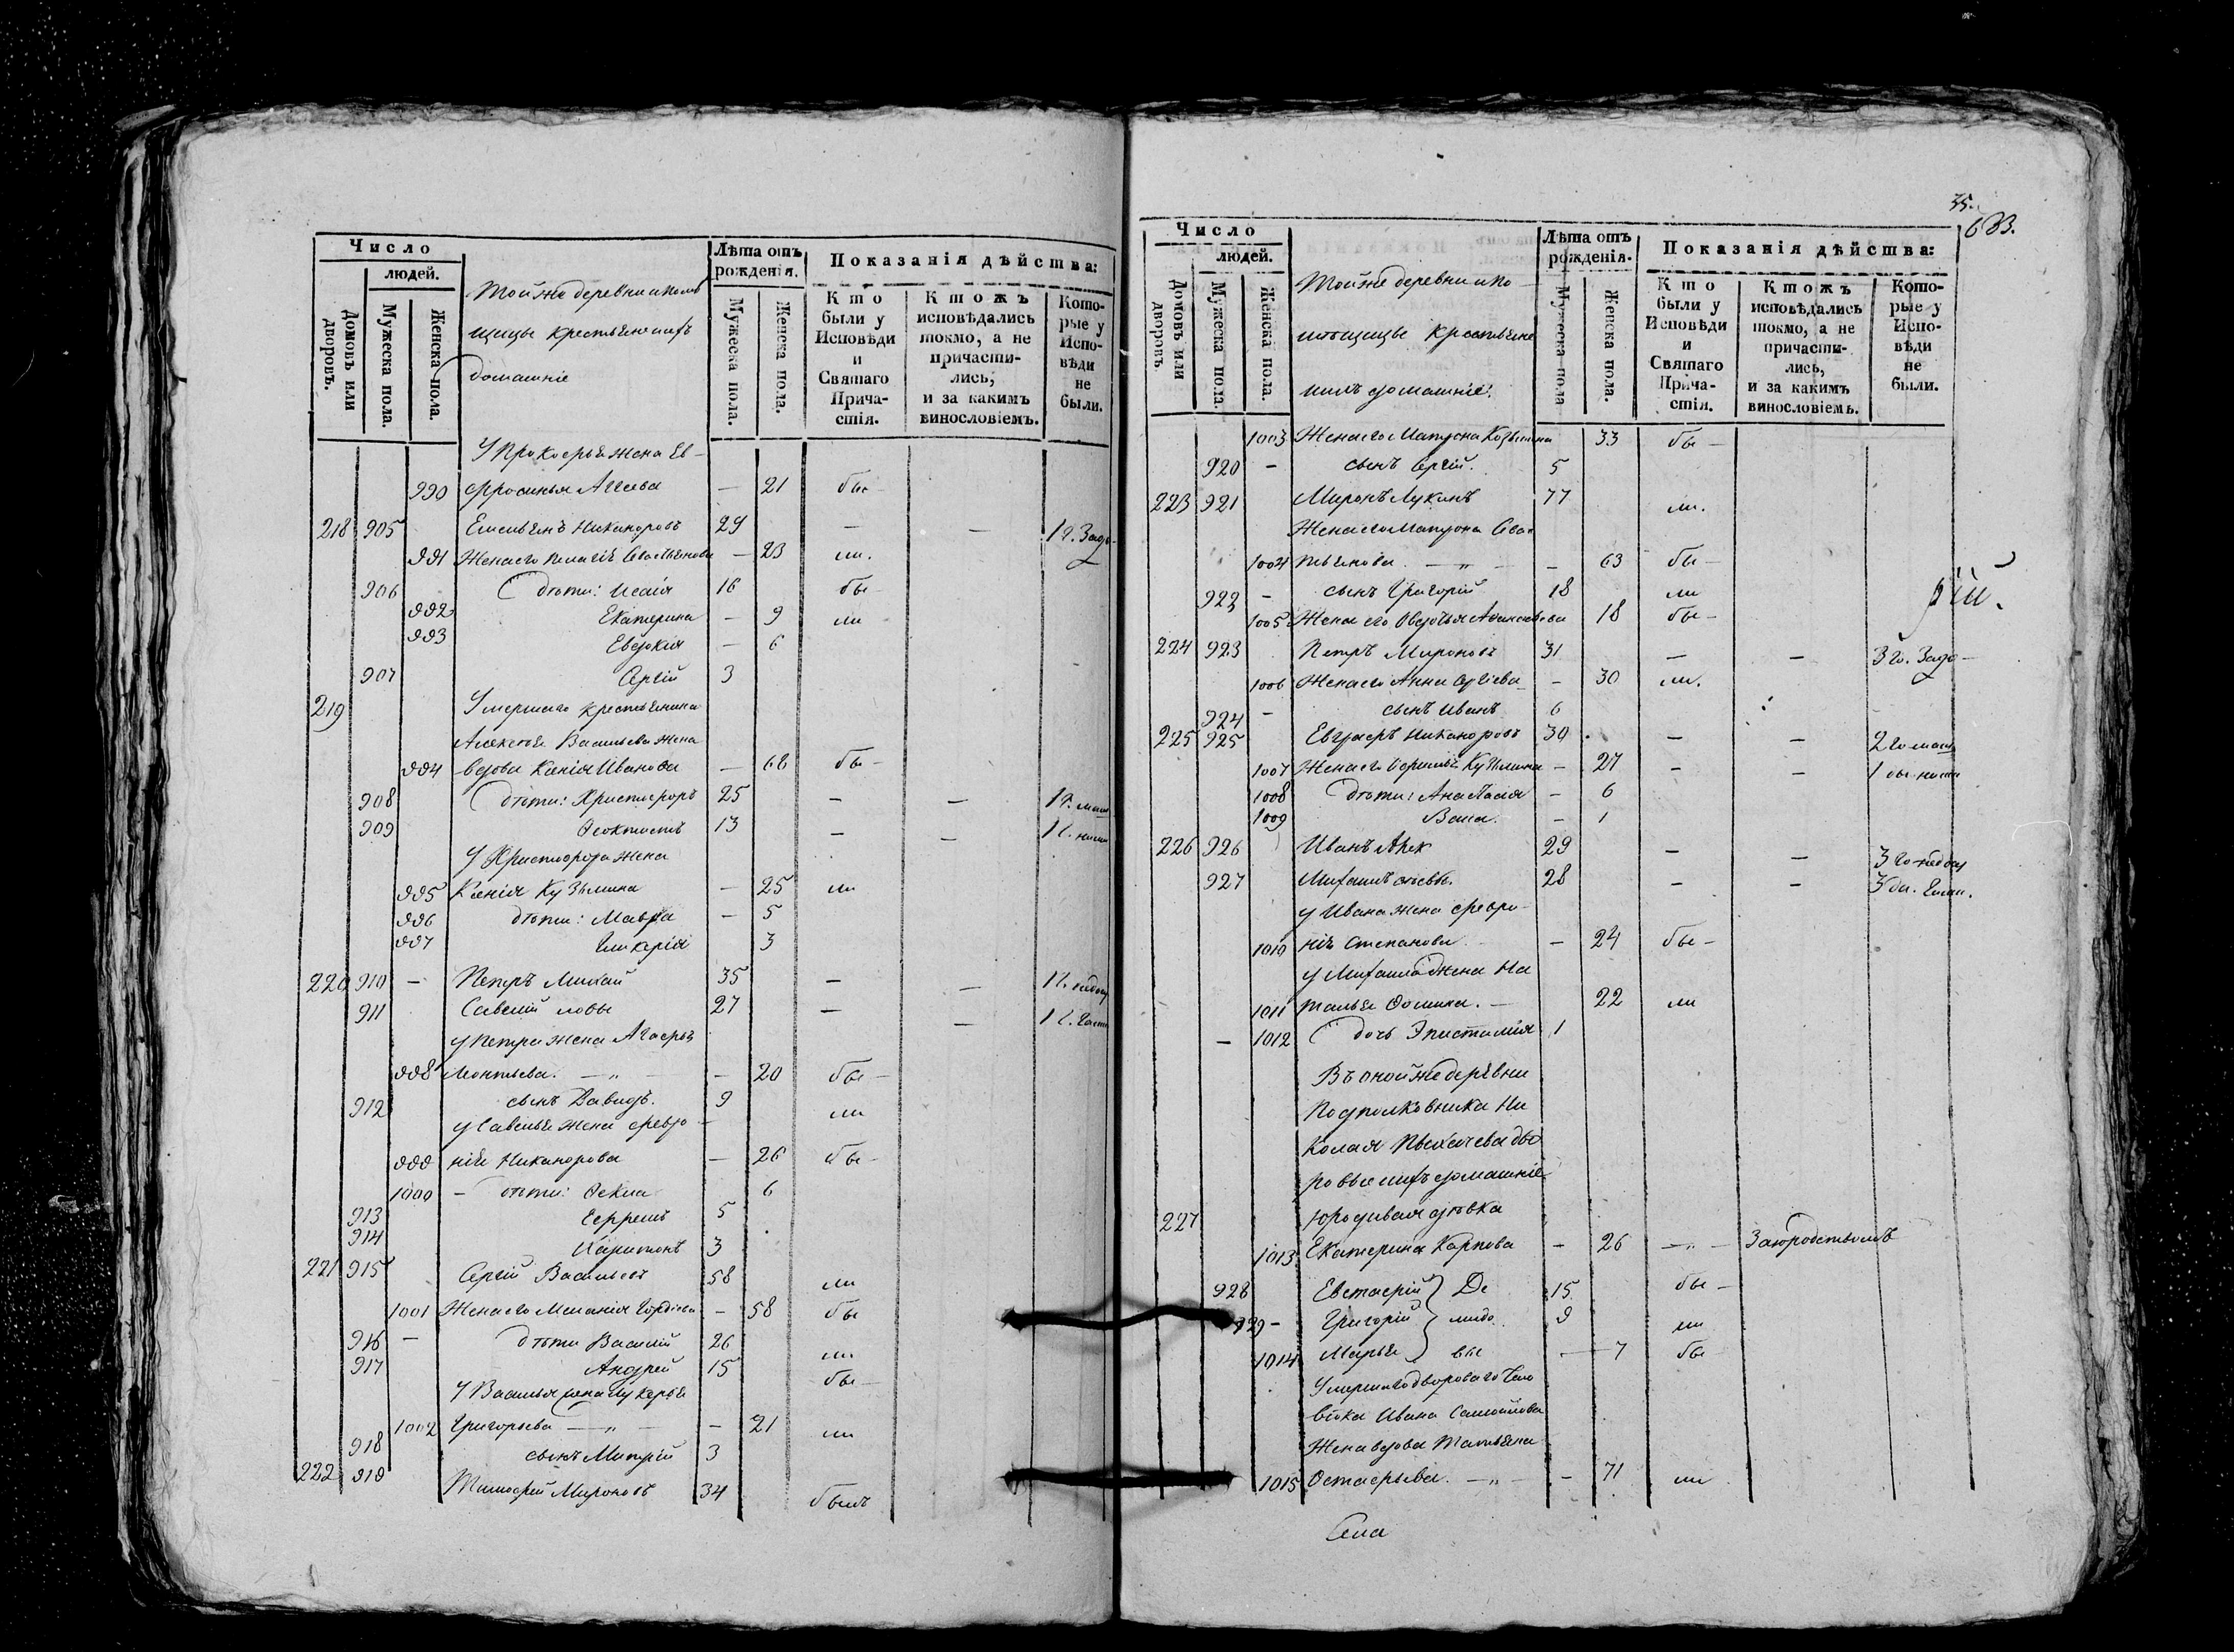 Число
людей.
Домовъ или дворовъ.
Мужеска пола.
Женска пола.
Тойже деревни и помѣ
щицы крестьяне ихъ
домашніе
Лѣта отъ рожденія.
Мужеска пола.
Женска пола.
Показанія дѣйства:
Кто были у Исповѣди и Святаго Причастія.
Ктожъ исповѣдались токмо, а не причастились, и за какимъ винословіемъ.
Которые у Исповѣди не были.
У Прокофья жена Ев-
990 фросинья Агеева — 21 бы
218 905 Емельянъ Никаноровъ 29 — —
991 Жена его Пелагія Севастьянова — 23 ли.
906 дѣти: Исаія 16 бы
992 Екатерина — 9 ли
993 Евдокія — 6
907 Сергій 3
219 Умершаго крестьянина
Алексѣя Васильева жена
994 вдова Ксенія Иванова — 68 бы
908 дѣти: Христофоръ 25 — —
909 Феоктистъ 13 — —
У Христофора жена
995 Ксенія Кузьмина — 25 ли
996 дѣти: Мавра — 5
997 Гликерія 3
220 910 — Петръ 35 — —
911 Савелій 27 — —
у Петра жена Агафья
998 Леонтьева. — 20 бы
912 сынъ Давидъ. 9 ли
у Савелья жена Февро-
999 нія Никанорова — 26 бы
1000 — дѣти: Фекла 6
913 Ефремъ 5
914 Харитонъ 3
221 915 Сергій Васильевъ 58 ли
1001 Жена его Меланія Гордѣева — 58 бы
916 — дѣти Василій 26 ли
917 Андрей 15 бы
У Василья жена Лукерья
1002 Григорьева — 21 ли
918 сынъ Митрій 3
222 919 Тимофей Мироновъ 34 былъ
35.
633.
Число
людей.
Домовъ или дворовъ
Мужеска пола.
Женска пола.
Тойже деревни и по-
мѣщицы крестьяне
ихъ домашніе.
Лѣта отъ рожденія.
Мужеска пола
Женска пола.
Показанія дѣйства:
Кто были у Исповѣди и Святаго Причастія.
Ктожъ исповѣдались токмо, а не причастились, и за какимъ винословіемъ.
Которые у Исповѣди не были.
1003 Жена его Матрона Козьмина 33 бы
920 — сынъ Сергій. 5
223 921 Миронъ Лукинъ 77 ли.
Жена его Матрона Севас
1004 тьянова. — 63 бы
922 — сынъ Григорій 18 ли
1005 Жена его Авдотья 18 бы
224 923 Петръ Мироновъ 31 — —
1006 Жена его Анна Сергіева — 30 ли.
924 — сынъ Иванъ 6
225 925 Евграфъ Никаноровъ 30 — —
1007 Жена его Кузьмина — 27 — —
1008 дѣти: Анастасія — 6
1009 Васса. — 1
226 926 Иванъ Алек 29 — —
927 Михаилъ сѣевы. 28 — —
у Ивана жена Февро-
1010 нія Степанова — 24 бы
у Михаила жена На
1011 талья Фомина. — 22 ли
— 1012 дочь Эпистимія 1
Въ оной же деревни
Подполковника Ни
колая Пыхачева дво
ровые ихъ домашніе
227 юродивая дѣвка
1013 Екатерина Карпова — 26 — За юродствомъ
928 Евстафій } Де 15 бы
929 — Григорій } мидо 9 ли
1014 Марья } вы — 7 бы
Умершаго двороваго чело
вѣка Ивана Самойлова
жена вдова Татьяна
1015 Остафьева. — 71 ли
Села